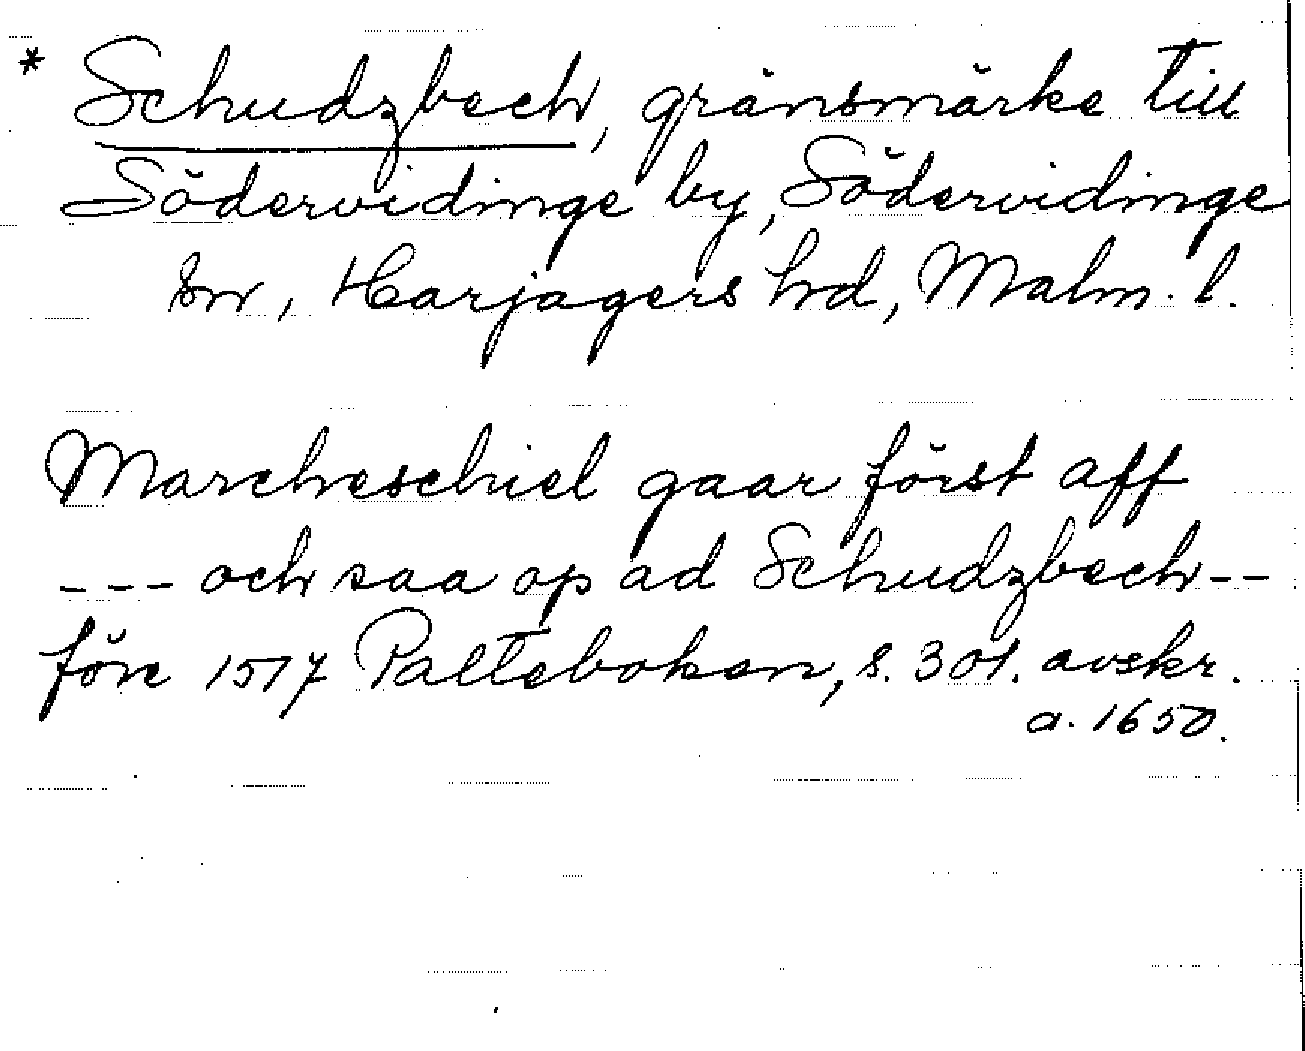 * Schudzbech, gränsmärke till
Södervidinge by, Södervidinge
sn, Harjagers hd, Malm. l.
Marcheschiel gaar först aff
--- och saa op ad Schudzbech--
före 1517 Palteboken, s. 301. avskr.
a. 1650.